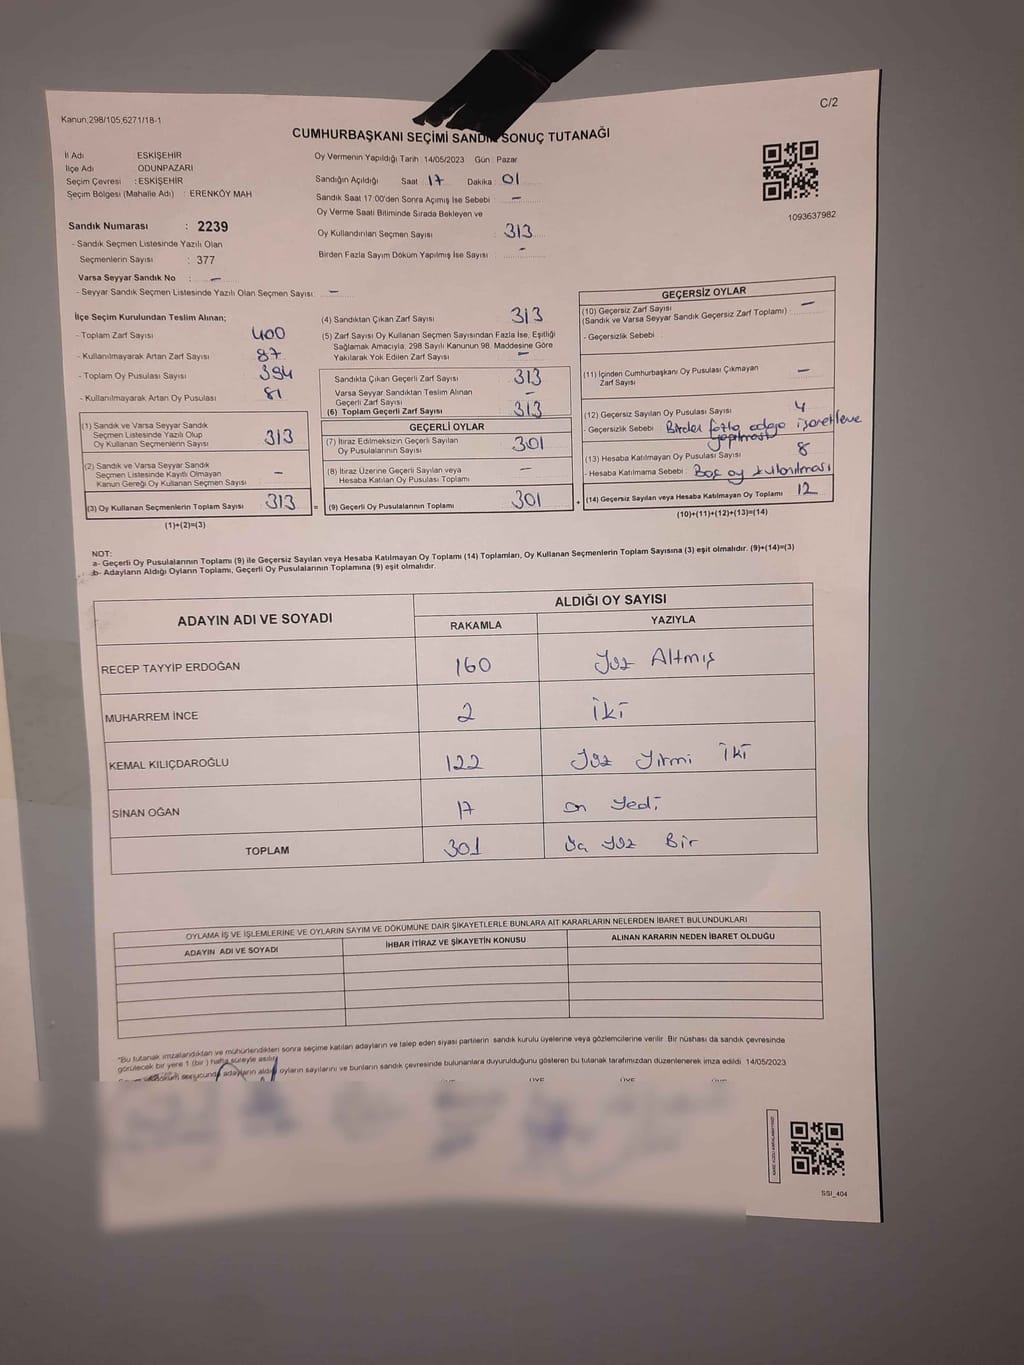 Kanun,298/105,6271/18-1
C/2
CUMHURBAŞKANI SEÇİMİ SANDIK SONUÇ TUTANAĞI
İl Adı : ESKİŞEHİR
İlçe Adı ODUNPAZARI
Seçim Çevresi : ESKİŞEHİR
Seçim Bölgesi (Mahalle Adı) : ERENKÖY MAH
Sandık Numarası : 2239
- Sandık Seçmen Listesinde Yazılı Olan
Seçmenlerin Sayısı : 377
Varsa Seyyar Sandık No : -
- Seyyar Sandık Seçmen Listesinde Yazılı Olan Seçmen Sayısı: -
Oy Vermenin Yapıldığı Tarih 14/05/2023 Gün : Pazar
Sandığın Açıldığı Saat 17 Dakika 01
Sandık Saat 17:00'den Sonra Açımış İse Sebebi : -
Oy Verme Saati Bitiminde Sırada Bekleyen ve
Oy Kullandırılan Seçmen Sayısı : 313
Birden Fazla Sayım Döküm Yapılmış İse Sayısı : -
1093637982
İlçe Seçim Kurulundan Teslim Alınan;
- Toplam Zarf Sayısı 400
- Kullanılmayarak Artan Zarf Sayısı 87
- Toplam Oy Pusulası Sayısı 394
- Kullanılmayarak Artan Oy Pusulası 81
(1) Sandık ve Varsa Seyyar Sandık
Seçmen Listesinde Yazılı Olup
Oy Kullanan Seçmenlerin Sayısı 313
(2) Sandık ve Varsa Seyyar Sandık
Seçmen Listesinde Kayıtlı Olmayan
Kanun Gereği Oy Kullanan Seçmen Sayısı -
(3) Oy Kullanan Seçmenlerin Toplam Sayısı 313 =
(1)+(2)=(3)
(4) Sandıktan Çıkan Zarf Sayısı 313
(5) Zarf Sayısı Oy Kullanan Seçmen Sayısından Fazla İse, Eşitliği
Sağlamak Amacıyla, 298 Sayılı Kanunun 98. Maddesine Göre
Yakılarak Yok Edilen Zarf Sayısı -
Sandıkta Çıkan Geçerli Zarf Sayısı 313
Varsa Seyyar Sandıktan Teslim Alınan
Geçerli Zarf Sayısı -
(6) Toplam Geçerli Zarf Sayısı 313
GEÇERLİ OYLAR
(7) İtiraz Edilmeksizin Geçerli Sayılan
Oy Pusulalarının Sayısı 301
(8) İtiraz Üzerine Geçerli Sayılan veya
Hesaba Katılan Oy Pusulası Toplamı -
(9) Geçerli Oy Pusulalarının Toplamı 301 +
GEÇERSİZ OYLAR
(10) Geçersiz Zarf Sayısı
(Sandık ve Varsa Seyyar Sandık Geçersiz Zarf Toplamı) : -
- Geçersizlik Sebebi :
(11) İçinden Cumhurbaşkanı Oy Pusulası Çıkmayan
Zarf Sayısı -
(12) Geçersiz Sayılan Oy Pusulası Sayısı 4
- Geçersizlik Sebebi : Birden fazla adaya işaretleme
yapılması
(13) Hesaba Katılmayan Oy Pusulası Sayısı 8
- Hesaba Katılmama Sebebi : Boş oy kullanılması
(14) Geçersiz Sayılan veya Hesaba Katılmayan Oy Toplamı 12
(10)+(11)+(12)+(13)=(14)
NOT:
a- Geçerli Oy Pusulalarının Toplamı (9) ile Geçersiz Sayılan veya Hesaba Katılmayan Oy Toplamı (14) Toplamları, Oy Kullanan Seçmenlerin Toplam Sayısına (3) eşit olmalıdır. (9)+(14)=(3)
b- Adayların Aldığı Oyların Toplamı, Geçerli Oy Pusulalarının Toplamına (9) eşit olmalıdır.
ADAYIN ADI VE SOYADI ALDIĞI OY SAYISI
RAKAMLA YAZIYLA
RECEP TAYYİP ERDOĞAN 160 Yüz Altmış
MUHARREM İNCE 2 İki
KEMAL KILIÇDAROĞLU 122 Yüz Yirmi İki
SİNAN OĞAN 17 On Yedi
TOPLAM 301 Üç Yüz Bir
OYLAMA İŞ VE İŞLEMLERİNE VE OYLARIN SAYIM VE DÖKÜMÜNE DAİR ŞİKAYETLERLE BUNLARA AİT KARARLARIN NELERDEN İBARET BULUNDUKLARI
ADAYIN ADI VE SOYADI İHBAR İTİRAZ VE ŞİKAYETİN KONUSU ALINAN KARARIN NEDEN İBARET OLDUĞU
"Bu tutanak imzalandıktan ve mühürlendikten sonra seçime katılan adayların ve talep eden siyasi partilerin sandık kurulu üyelerine veya gözlemcilerine verilir. Bir nüshası da sandık çevresinde
görülecek bir yere 1 (bir) hafta süreyle asılır.
sonucunda adayların aldığı oyların sayılarını ve bunların sandık çevresinde bulunanlara duyurulduğunu gösteren bu tutanak tarafımızdan düzenlenerek imza edildi 14/05/2023
SSI_404